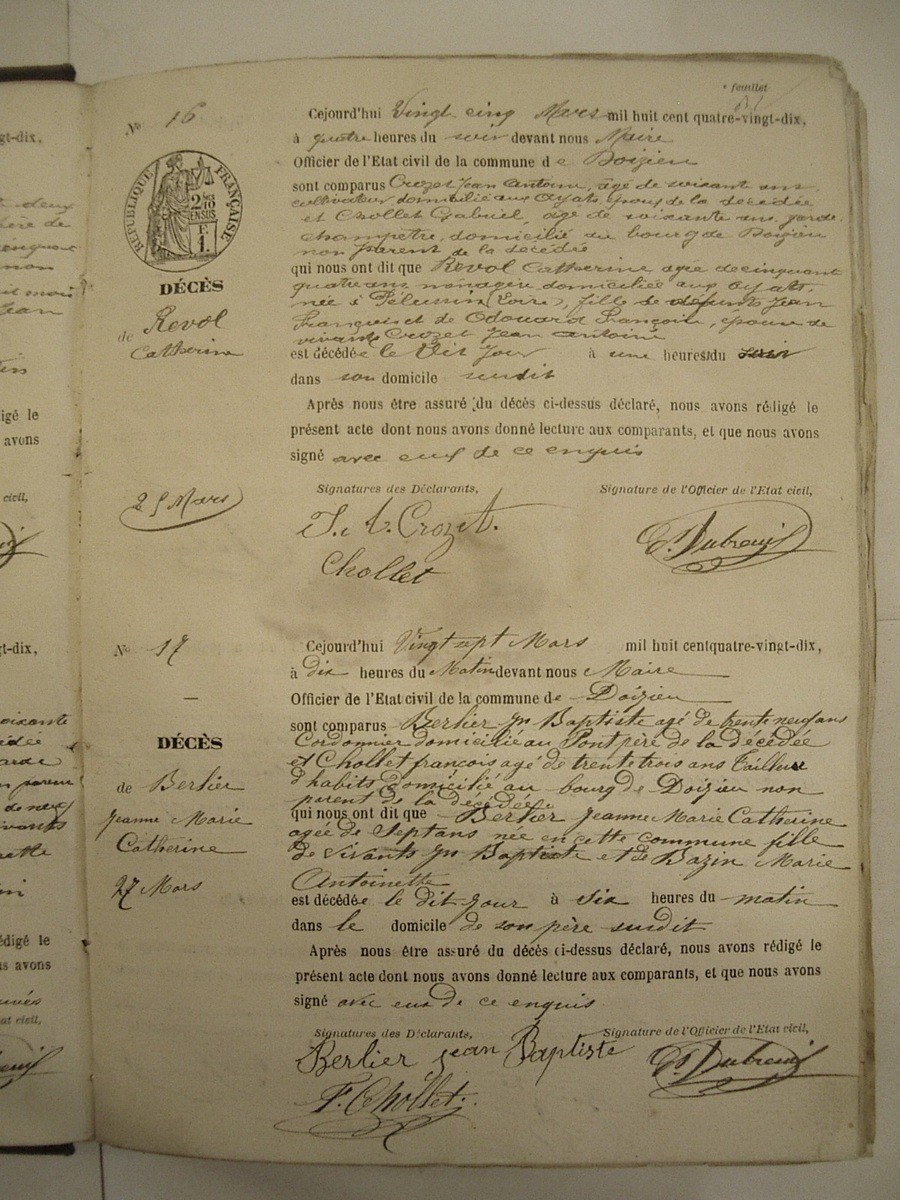 feuillet
N° 16
Cejourd'hui Vingt cinq Mars mil huit cent quatre-vingt-dix,
à quatre heures du soir devant nous Maire
Officier de l'Etat civil de la commune de Doizieu
sont comparus Crozet Jean Antoine, âgé de soixante ans
cultivateur domicilié aux Oyats, époux de la décédée
et Chollet Gabriel, âgé de soixante ans, garde
champêtre, domicilié au bourg de Doizieu
non parent de la décédée
qui nous ont dit que Revol Catherine agée de cinquant
quatre ans ménagère domiciliée aux oyats,
née à Pélussin (Loire), fille de défunts Jean
François et de Odouard Françoise, épouse de
vivant Crozet Jean Antoine
est décédée le dit jour à une heures du soir
dans son domicile susdit
Après nous être assuré du décès ci-dessus déclaré, nous avons rédigé le
présent acte dont nous avons donné lecture aux comparants, et que nous avons
signé avec eux de ce enquis
REPUBLIQUE FRANÇAISE
DÉCÈS
de Revol
Catherine
25 Mars
Signatures des Déclarants, Signature de l'Officier de l'Etat civil,
J. A. Crozet. Dubreuil
Chollet
N° 17
Cejourd'hui Vingt sept Mars mil huit cent quatre-vingt-dix,
à dix heures du Matin devant nous Maire
Officier de l'Etat civil de la commune de Doizieu
sont comparus Berlier Jn Baptiste agé de trente neuf ans
Cordonnier domicilié au Pont père de la décédée
et Chollet françois agé de trente trois ans tailleur
d'habits domicilié au bourg de Doizieu non
parent de la décédée
qui nous ont dit que Berlier Jeanne Marie Catherine
agée de Sept ans née en cette commune fille
de vivants Jn Baptiste et de Bazin Marie
Antoinette
est décédée le dit jour à six heures du matin
dans le domicile de son père susdit
Après nous être assuré du décès ci-dessus déclaré, nous avons rédigé le
présent acte dont nous avons donné lecture aux comparants, et que nous avons
signé avec eux de ce enquis
DÉCÈS
de Berlier
Jeanne Marie
Catherine
27 Mars
Signatures des Déclarants, Signature de l'Officier de l'Etat civil,
Berlier Jean Baptiste Dubreuil
F. Chollet.